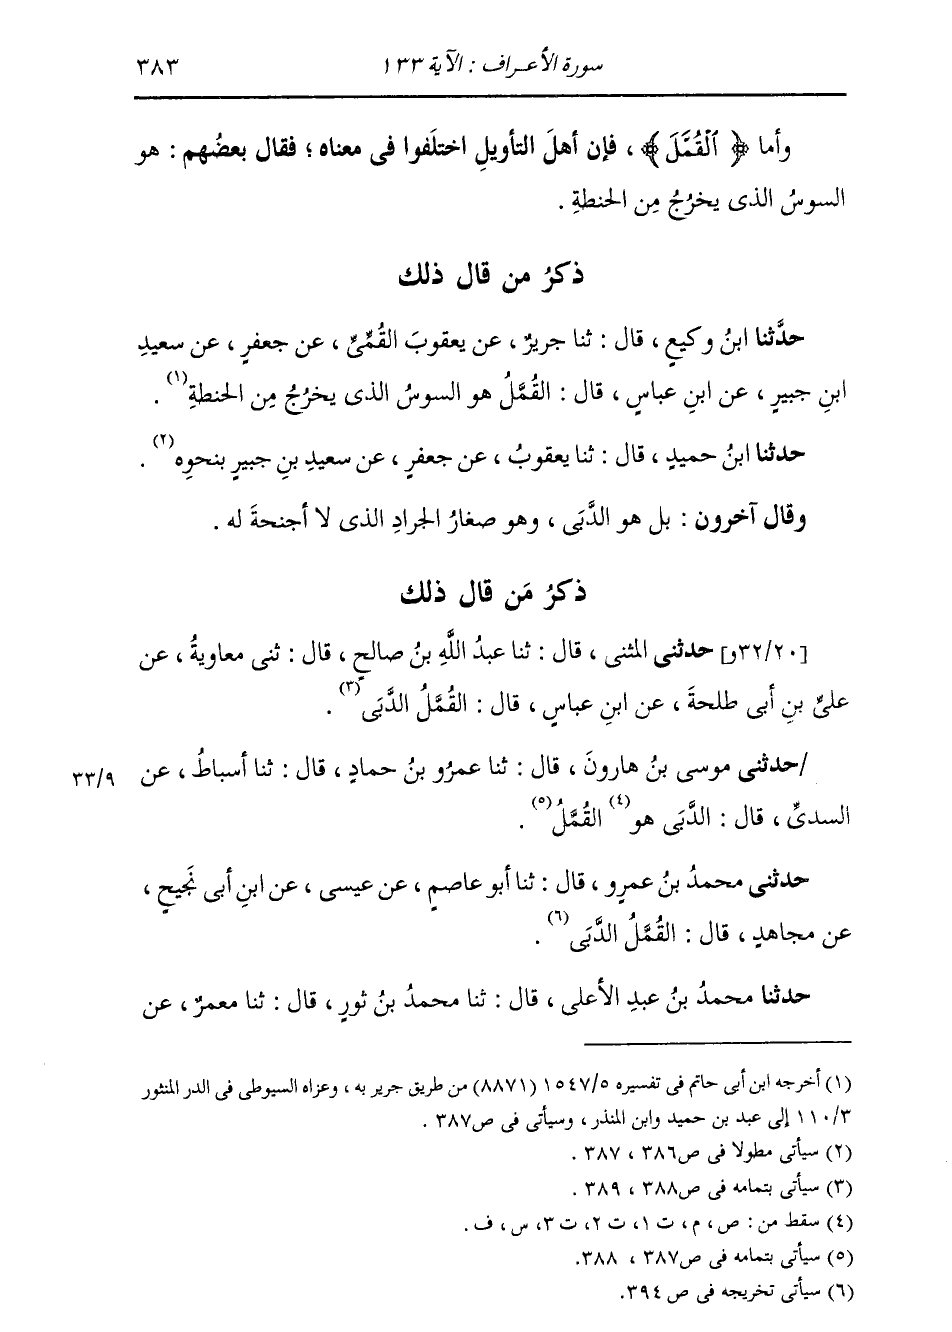 سورة الأعراف : الآية ١٣٣ ٣٨٣
وأما ﴿ ٱلْقُمَّلَ ﴾ ، فإن أهلَ التأويلِ اختلَفوا فى معناه ؛ فقال بعضُهم : هو
السوسُ الذى يخرُجُ مِن الحنطةِ .
ذكرُ من قال ذلك
حدَّثنا ابنُ وكيعٍ ، قال : ثنا جريرٌ ، عن يعقوبَ القُمِّىِّ ، عن جعفرٍ ، عن سعيدِ
ابنِ جبيرٍ ، عن ابنِ عباسٍ ، قال : القُمَّلُ هو السوسُ الذى يخرُجُ مِن الحنطةِ(١) .
حدثنا ابنُ حميدٍ ، قال : ثنا يعقوبُ ، عن جعفرٍ ، عن سعيدِ بنِ جبيرٍ بنحوِه(٢) .
وقال آخرون : بل هو الدَّبَى ، وهو صغارُ الجرادِ الذى لا أجنحةَ له .
ذكرُ مَن قال ذلك
[٣٢/٢٠و] حدثنى المثنى ، قال : ثنا عبدُ اللَّهِ بنُ صالحٍ ، قال : ثنى معاويةُ ، عن
علىِّ بنِ أبى طلحةَ ، عن ابنِ عباسٍ ، قال : القُمَّلُ الدَّبَى(٣) .
/حدثنى موسى بنُ هارونَ ، قال : ثنا عمرُو بنُ حمادٍ ، قال : ثنا أسباطُ ، عن ٣٣/٩
السدىِّ ، قال : الدَّبَى هو(٤) القُمَّلُ(٥) .
حدثنى محمدُ بنُ عمرٍو ، قال : ثنا أبو عاصمٍ ، عن عيسى ، عن ابنِ أبى نَجيحٍ ،
عن مجاهدٍ ، قال : القُمَّلُ الدَّبَى(٦) .
حدثنا محمدُ بنُ عبدِ الأعلى ، قال : ثنا محمدُ بنُ ثورٍ ، قال : ثنا معمرٌ ، عن
(١) أخرجه ابن أبى حاتم فى تفسيره ١٥٤٧/٥ (٨٨٧١) من طريق جرير به ، وعزاه السيوطى فى الدر المنثور
١١٠/٣ إلى عبد بن حميد وابن المنذر ، وسيأتى فى ص٣٨٧ .
(٢) سيأتى مطولا فى ص٣٨٦ ، ٣٨٧ .
(٣) سيأتى بتمامه فى ص٣٨٨ ، ٣٨٩ .
(٤) سقط من : ص ، م ، ت ١، ت ٢، ت ٣، س ، ف .
(٥) سيأتى بتمامه فى ص٣٨٧ ، ٣٨٨.
(٦) سيأتى تخريجه فى ص ٣٩٤.